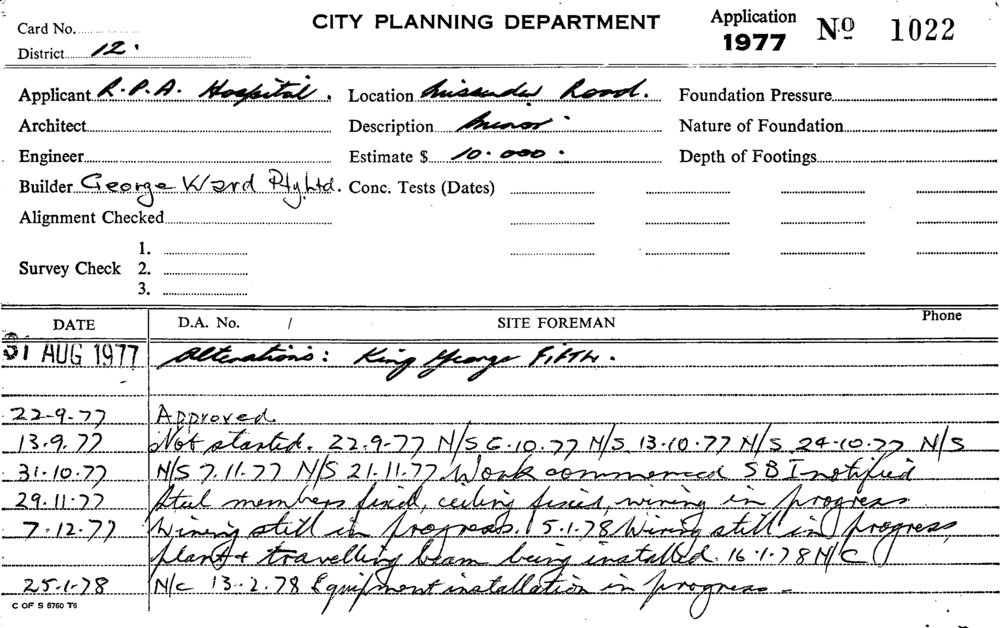 Card No.
CITY PLANNING DEPARTMENT
Application 1977 No 1022
District 12.
Applicant R.P.A. Hospital. Location Missenden Road. Foundation Pressure
Architect Description Minor Nature of Foundation
Engineer Estimate $ 10.000. Depth of Footings
Builder George Ward Pty Ltd. Conc. Tests (Dates)
Alignment Checked
1.
Survey Check 2.
3.
DATE D.A. No. / SITE FOREMAN Phone
31 AUG 1977 Alterations: King George Fifth.
22-9-77 Approved
13.9.77 Not started. 22.9-77 N/S 6.10.77 N/S 13.10.77 N/S 24.10.77 N/S
31.10.77 N/S 7.11.77 N/S 21.11.77 Work commenced SBI notified
29.11.77 Steel members fixed, ceiling fixed, wiring in progress
7.12.77 Wiring still in progress. 5.1.78 Wiring still in progress,
plant + travelling beam being installed. 16.1.78 N/C
25.1.78 N/C 13.2.78 Equipment installation in progress
C OF S 8760 T6